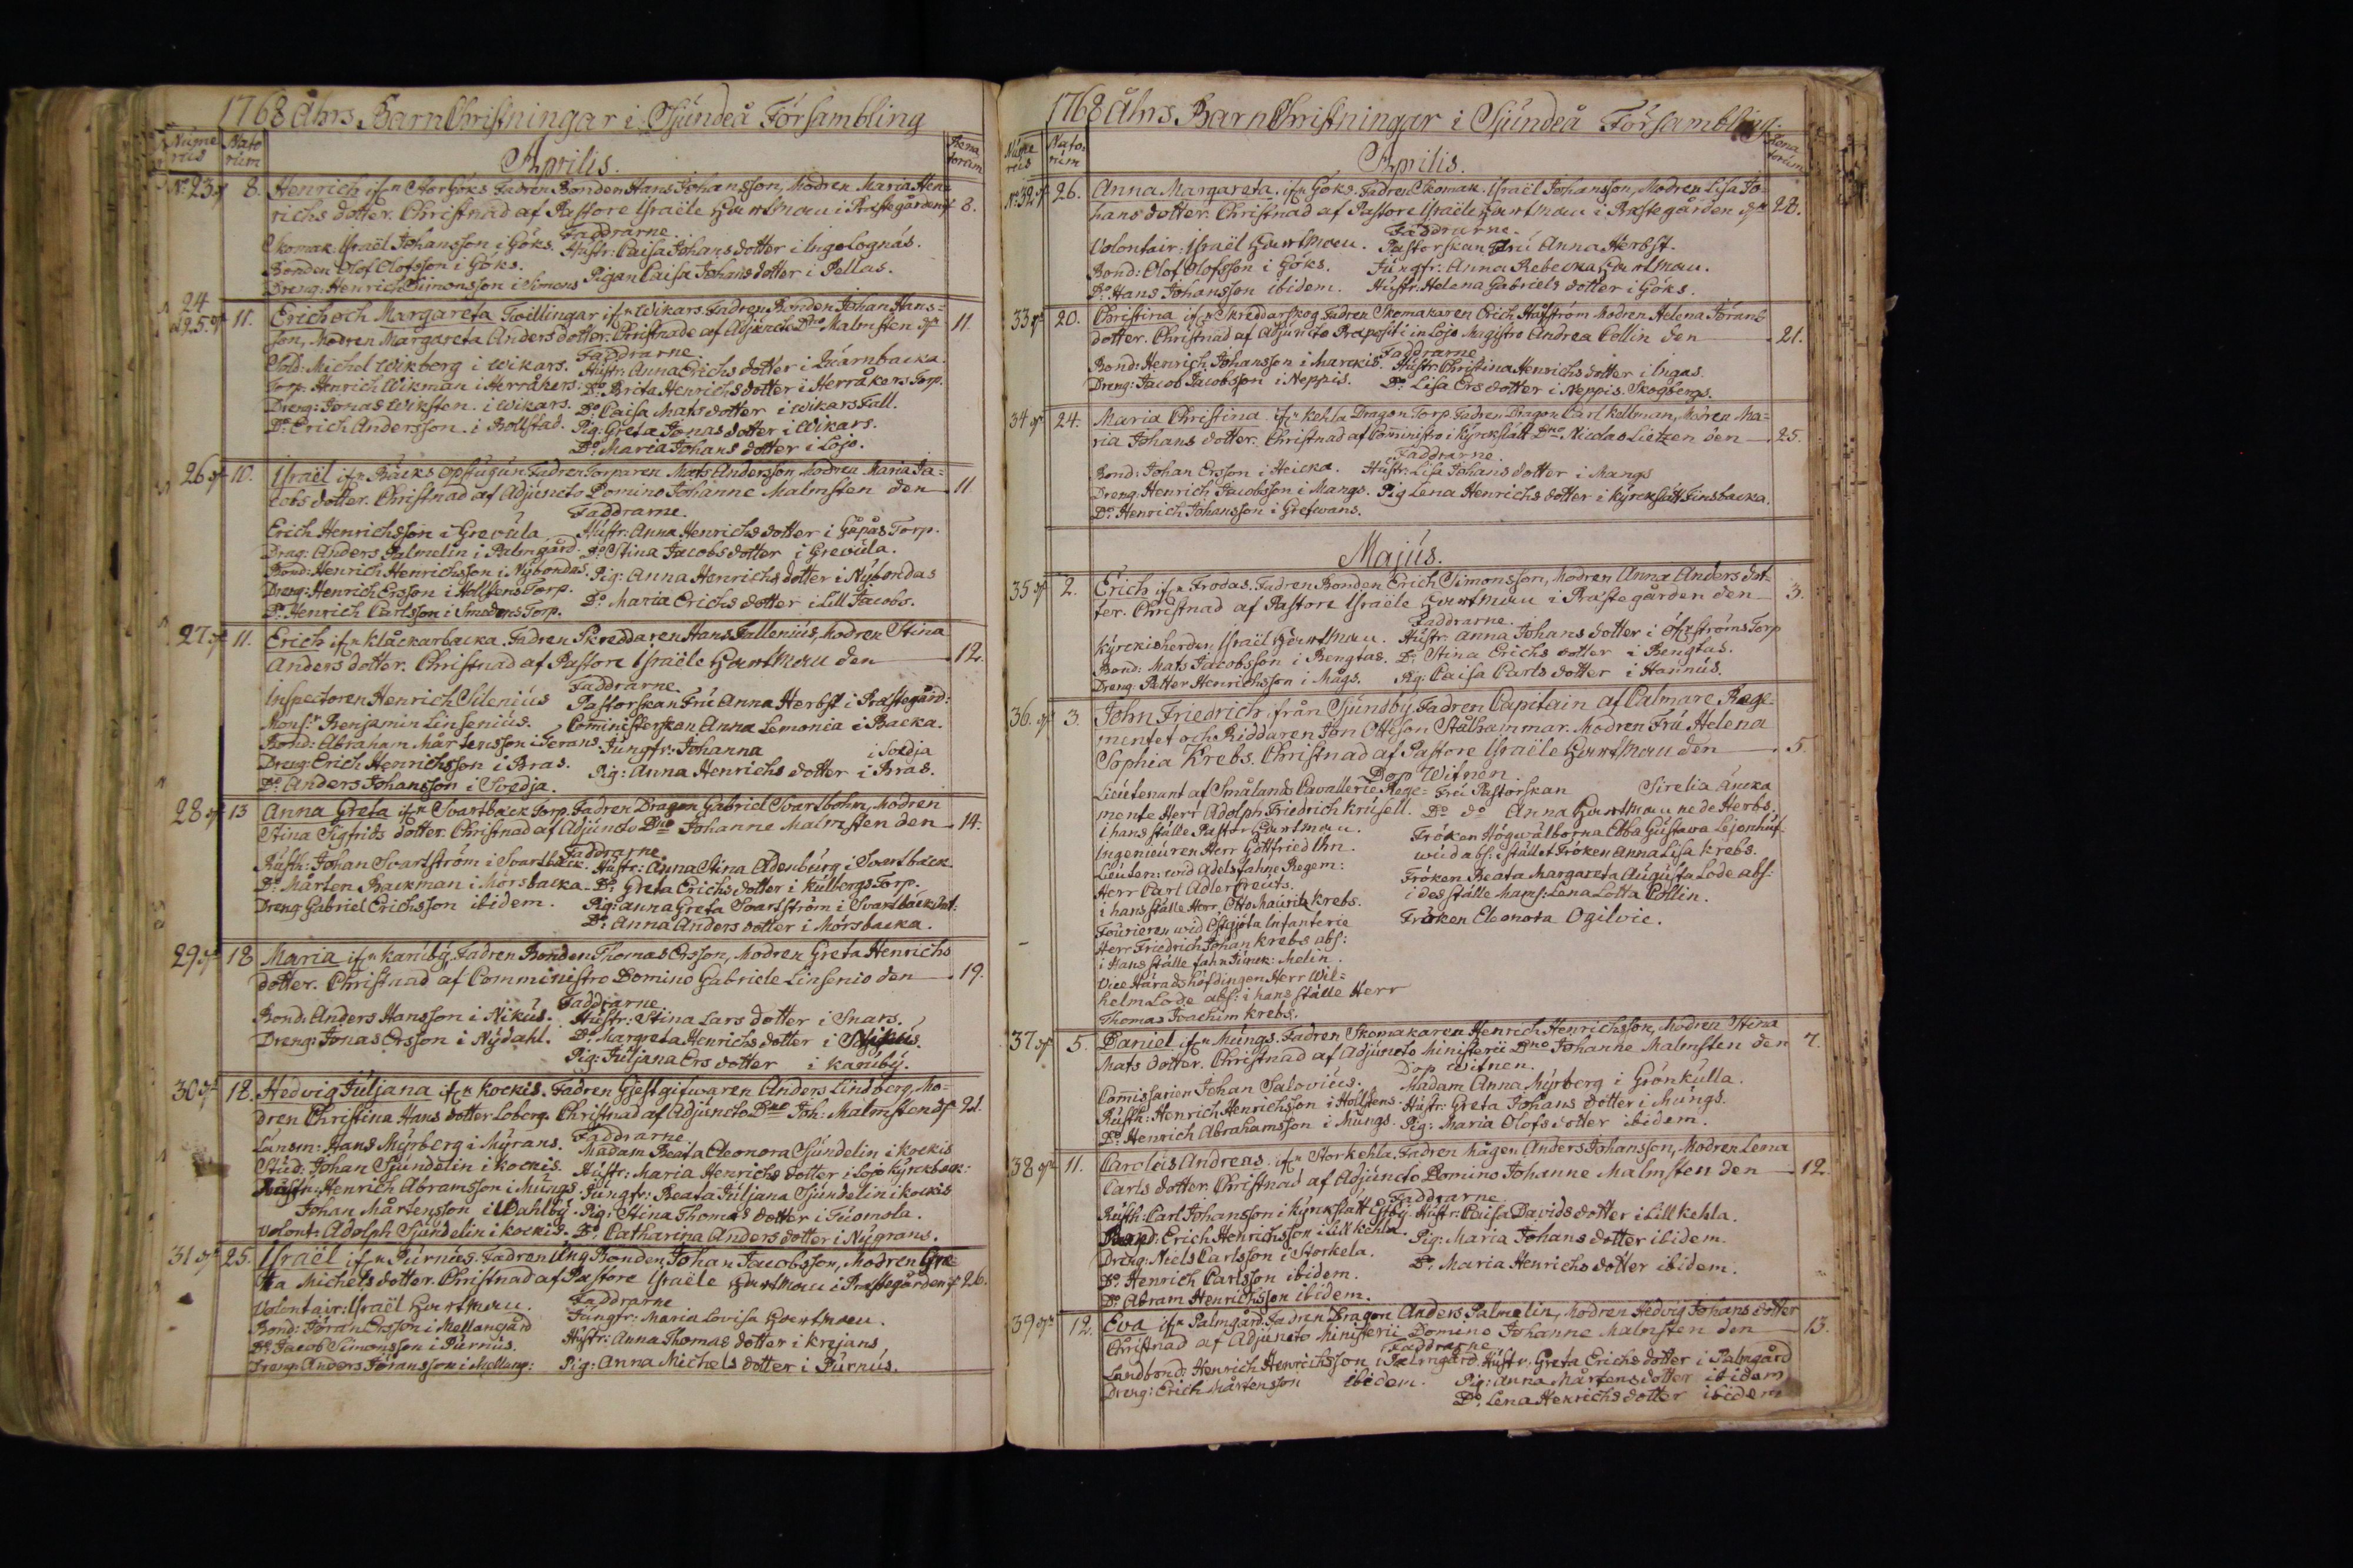 1768 åhrs Barn Christningar i Sjundeå Försambling
Nume rus Nato rum Aprilis. Rena torum
No 23 8. Henrich if:n StorGöks Fadren Bonden Hans Johansson, Modren Maria Hen=
richs dotter. Christnad af Pastore Israële Hartman i Prästegården 8.
Faddrarne.
Skomak: Israël Johansson i Göks. Hustr: Caisa Johans dotter i Ingolognäs.
Bonden Olof Olofsson i Göks.
Dreng: Henrich Simonsson i Simons Pigan Caisa Johans dotter i Pellas.
24 25. 11. Erich och Margareta Twillingar if:n Wikars. Fadren Bonden Johan Hans=
son, Modren Margareta Anders dotter. Christnade af Adjunct: Dno Malmsten 11.
Faddrarne
Sold: Michel Wikberg i Wikars. Hustr: Anna Erichs dotter i Qvarnbacka.
Torp: Henrich Wikman i Herråkers: Do Brita Henrichs dotter i Herråkers Torp.
Dreng: Jonas Wiksten i Wikars. Do Caisa Mats dotter i Wikars Tall.
Do Erich Andersson i Bollstad. Pig: Greta Jonas dotter i Wikars.
Do Maria Johans dotter i Lojo.
26 10. Israël if:n Bäcks Fadren Torparen Mats Andersson, Modren Maria Ja=
cobs dotter. Christnad af Adjuncto Domino Johanne Malmsten den 11
Faddrarne.
Erich Henrichsson i Grevula Hustr: Anna Henrichs dotter i Gåpås Torp.
Drag: Anders Palmelin i Palmgård. Do Stina Jacobs dotter i Grevula.
Bond: Henrich Henrichsson i Nybondas. Pig: Anna Henrichs dotter i Nybondas
Dreng: Henrich Ersson i Hollstens Torp. Do Maria Erichs dotter i Lill Jacobs.
Do Henrich Carlsson i Smedens Torp.
27 11. Erich if:n Klåckarbacka. Fadren Skreddaren Hans Fallenius, Modren Stina
Anders dotter. Christnad af Pastore Israële Hartman den 12.
Faddrarne.
Inspectoren Henrich Silenius Pastorskan Fru Anna Herbst i Prästegård:
Mons:r Benjamin Linsenius. Comministerskan Anna Lemonia i Backa.
Bond: Abraham Mårtensson i Jerans Jungfr: Johanna i Svedja
Dreng: Erich Henrichsson i Bras. Pig: Anna Henrichs dotter i Bras.
Do Anders Johansson i Svedja.
28 13 Anna Greta if:n Svartbäck Torp. Fadren Dragon Gabriel Svartbohn, Modren
Stina Sigfrids dotter. Christnad af Adjuncto Dno Johanne Malmsten den 14.
Faddrarne.
Rusth: Johan Svartström i Svartbäck. Hustr: Anna Stina Adenburg i Svartbäck
Do Mårten Backman i Mörsbacka. Do Greta Erichs dotter i Kulbergs Torp.
Dreng Gabriel Erichsson ibidem. Pig: Anna Greta Svartström i Svartbäck
Do Anna Anders dotter i Mörsbacka.
29 18 Maria if:n Karuby, Fadren Bonden Thomas Ersson, Modren Greta Henrichs
dotter. Christnad af Comministro Domino Gabriele Linsenio den 19.
Faddrarne.
Bond: Anders Hansson i Nikus. Hustr: Stina Lars dotter i Snars.
Dreng: Jonas Ersson i Nydahl. Do Margreta Henrichs dotter i
Pig: Juljana Ers dotter i Karuby.
30 18. Hedvig Juljana if:n Kockis. Fadren Gjestgifwaren Anders Lindberg, Mo=
dren Christina Hans dotter Loberg. Christnad af Adjuncto Dno Joh: Malmsten 21.
Faddrarne.
Länsm: Hans Myrberg i Myrans. Madam Beata Eleonora Sjundelin i Kockis
Stud: Johan Sjundelin i Kockis. Hustr: Maria Henrichs dotter i Lojo Kyrkback:
Rusth: Henrich Abramsson i Mungs Jungfr: Beata Juljana Sjundelin i Kockis
Johan Mårtensson i Wahlby. Pig: Stina Thomas dotter i Tuomola.
Volont: Adolph Sjundelin i Kockis. Do Catharina Anders dotter i Nygrans.
31 25. Israël if:n Purnus. Fadren Ung Bonden Johan Jacobsson, Modren Gre=
ta Michels dotter. Christnad af Pastore Israële Hartman i Prästegården 26.
Faddrarne
Volontair: Israël Hartman. Jungfr: Maria Lovisa Hartman.
Bond: Jöran Ersson i Mellangård Hustr: Anna Thomas dotter i Krejans
Do Jacob Simonsson i Purnus.
Dreng: Anders Jöransson i Mellang: Pig: Anna Michels dotter i Purnus.
1768 Åhrs Barn Christningar i Sjundeå Försambling.
Nume rus Nato rum Aprilis. Rena torum
No 32 26. Anna Margareta if:n Göks. Fadren Skomak. Israël Johansson, Modren Lisa Jo=
hans dotter. Christnad af Pastore Israële Hartman i Prästegården 28.
Faddrarne.
Volontair: Israël Hartman. Pastorskan Fru Anna Herbst.
Bond: Olof Olofsson i Göks. Jungfr: Anna Rebecka Hartman.
Do Hans Johansson ibidem. Hustr: Helena Gabriels dotter i Göks.
33 20. Christina if:n Skreddarskog Fadren Skomakaren Erich Hallström Modren Helena Jörans
dotter. Christnad af Adjuncto Præpositi in Lojo Magistro Andrea Collin den 21.
Faddrarne
Bond: Henrich Johansson i Marckis. Hustr: Christina Henrichs dotter i Ingas.
Dreng: Jacob Jacobsson i Neppis. Do Lisa Ers dotter i Neppis Skogbergs.
34 24. Maria Christina if:n Kehla Dragon Torp. Fadren Dragon Carl Kellman, Modren Ma=
ria Johans dotter. Christnad af Com̄inistro i Kyrckslätt Dno Nicolao Lietzen den 25.
Faddrarne.
Bond: Johan Ersson i Heicka. Hustr: Lisa Johans dotter i Mangs
Dreng. Henrich Jacobsson i Mangs. Pig Lena Henrichs dotter i Kyrckslätt Finsbacka.
Do Henrich Johansson i Grefwans.
Majus.
35 2. Erich if:n Frodas. Fadren Bonden Erich Simonsson, Modren Anna Anders dot=
ter. Christnad af Pastore Israële Hartman i Prästegården den 3.
Faddrarne.
Kyrckioherden Israël Hartman. Hustr: Anna Johans dotter i Torp
Bond: Mats Jacobsson i Bengtas. Do Stina Erichs dotter i Bengtas.
Dreng: Petter Henrichsson i Mågs. Pig: Caisa Carls dotter i Hannus.
36. 3. John Friedrich från Sjundby. Fadren Capitain af Calmare Rege=
mentet och Riddaren Jon Otteson Stålhammar. Modren Fru Helena
Sophia Krebs. Christnad af Pastore Israële Hartman den 5.
Dop Witnen.
Lieutenant af Smålands Cavallerie Rege= Fru Pastorskan Sirelia Encka
mente Herr Adolph Friedrich Krusell. Do do Anna Hartman ne de Herbs.
i hans ställe Pastor Hartman. Fröken Högwälborna Ebba Gustava Lejonhuf=
Ingenieuren Herr Gottfried Ihn. wud abs: i stället Fröken Anna Lisa Krebs.
Lieuten: wid Adelsfahne Regem: Fröken Beata Margareta Augusta Lode abs:
Herr Carl Adlercreuts. i des ställe Mams: Lena Lotta Collin.
i hans ställe Herr Otto Mauritz Krebs. Fröken Eleonora Ogilvie.
Fourieren wid Östgjöta Infanterie
Herr Friedrich Johan Krebs abs:
i Hans ställe fahnJunck: Melin.
Vice Häradshöfdingen Herr Wil=
helm Lode abs: i hans ställe Herr
Thomas Joachim Krebs.
37 5. Daniel if:n Mungs. Fadren Skomakaren Henrich Henrichsson, Modren Stina
Mats dotter. Christnad af Adjuncto Ministerii Dno Johanne Malmsten den 7.
Dop Witnen.
Com̄issarien Johan Salovius. Madam Anna Myrberg i Grönkulla.
Rusth: Henrich Henrichsson i Hollstens. Hustr: Greta Johans dotter i Mungs.
Do Henrich Abrahamsson i Mungs. Pig: Maria Olofs dotter ibidem.
38 11. Carolus Andreas if:n Storkehla. Fadren Mågen Anders Johansson, Modren Lena
Carls dotter. Christnad af Adjuncto Domino Johanne Malmsten den 12.
Faddrarne
Rusth: Carl Johansson i Kyrckslätt Hustr: Caisa Davids dotter i Lill Kehla.
Bond: Erich Henrichsson i Lill Kehla. Pig: Maria Johans dotter ibidem.
Dreng: Niels Carlsson i Storkela. Do Maria Henrichs dotter ibidem.
Do Henrich Carlsson ibidem.
Do Abram Henrichsson ibidem.
39 12. Eva if:n Palmgård. Fadren Dragon Anders Palmelin, Modren Hedvig Johans dotter
Christnad af Adjuncto Ministerii Domino Johanne Malmsten den 13.
Faddrarne
Landbond: Henrich Henrichsson i Palmgård. Hustr: Greta Erichs dotter i Palmgård
Dreng: Erich Mårtensson ibidem. Pig: Anna Mårtens dotter ibidem
Do Lena Henrichs dotter ibidem